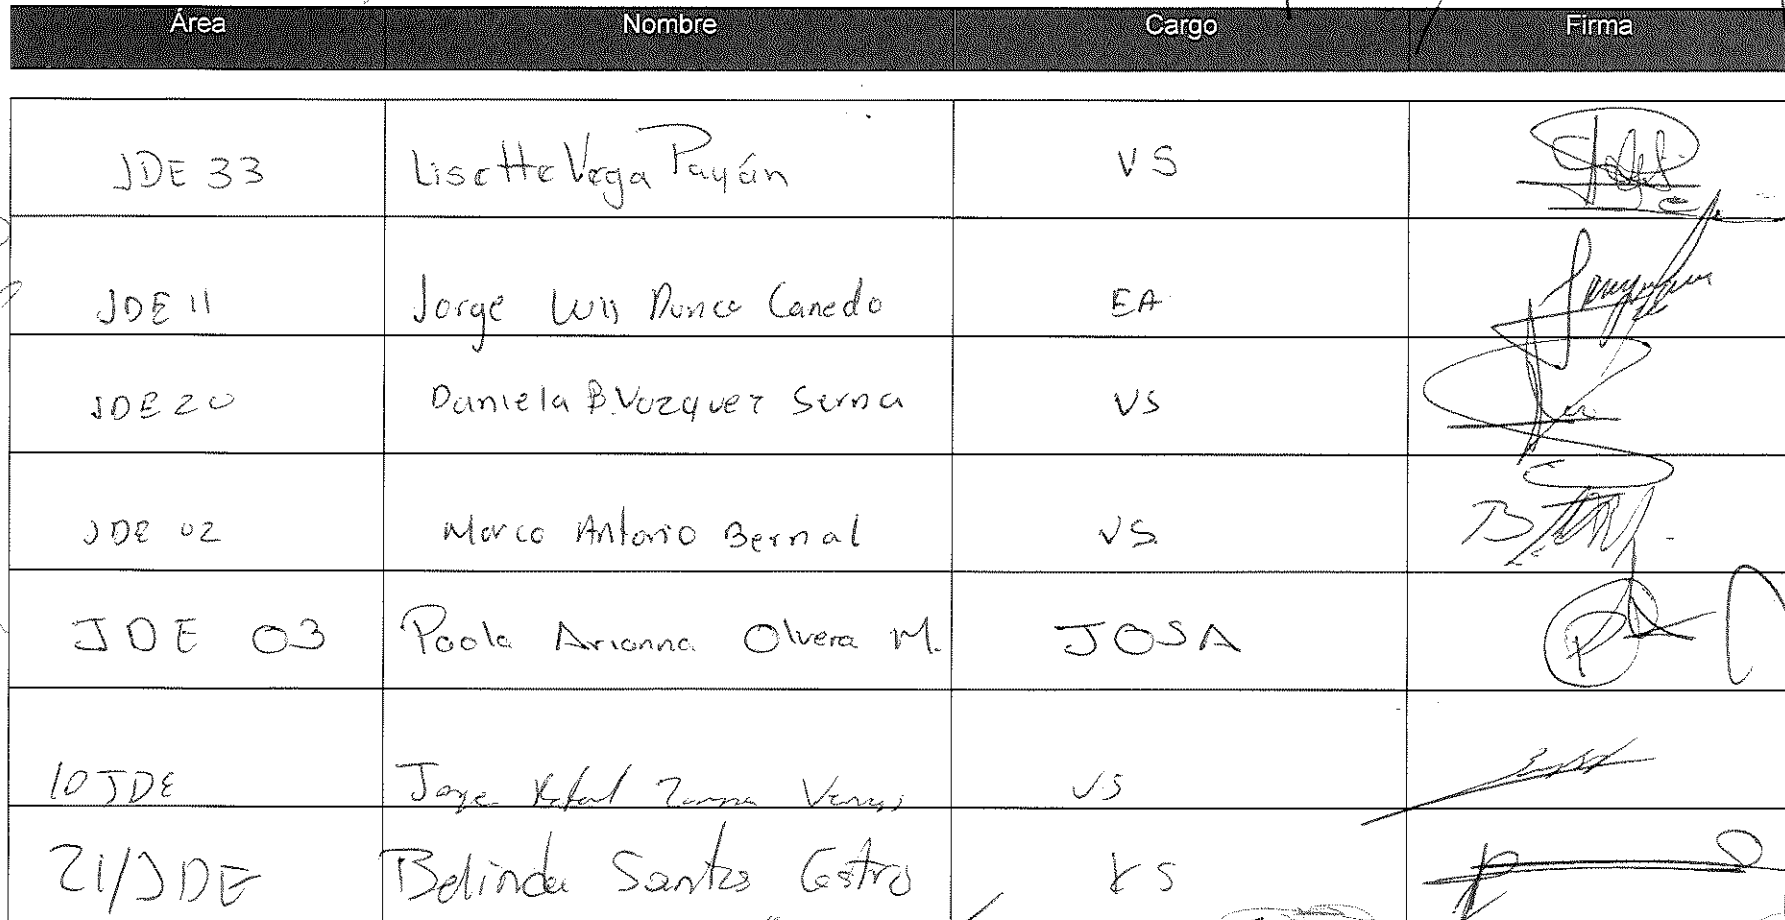 Área Nombre Cargo Firma
JDE 33 Lisette Vega Payán VS
JDE 11 Jorge Luis Canedo EA
JDE 20 Daniela B. Vazquez Serna VS
JDE 02 Marco Antonio Bernal VS.
JDE 03 Paola Arianna Olvera M. JOSA
10 JDE Jorge VS
21/JDE Belinda Santos Castro VS